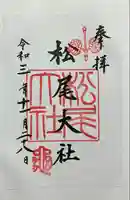 奉拝
松尾大社
令和三年十一月二八日
松尾
大社